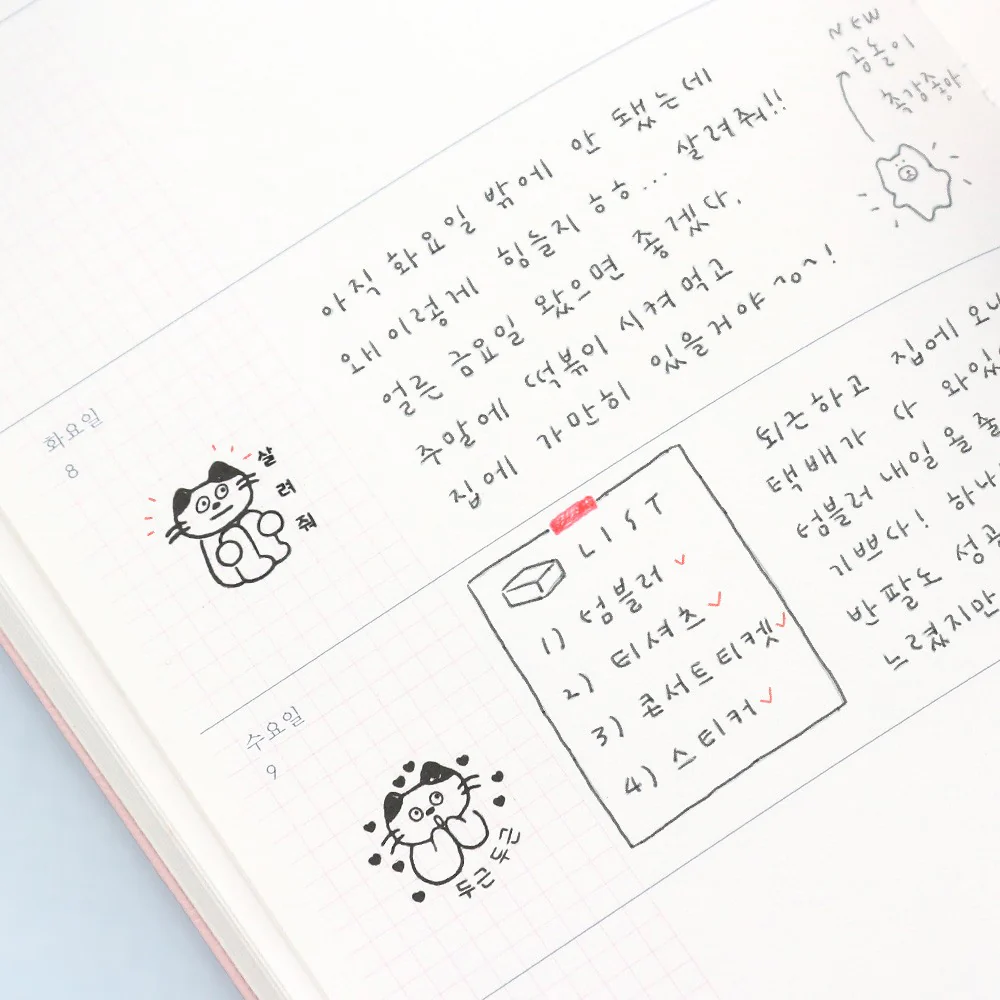 NEW
공놀이
촉감좋아
화요일
8
살
려
줘
아직 화요일 밖에 안 됐는데
왜 이렇게 힘들지 ㅎㅎ... 살려줘!!
얼른 금요일 왔으면 좋겠다.
주말에 떡볶이 시켜먹고
집에 가만히 있을거야 ~o~!
수요일
9
두근두근
LIST
1) 텀블러 ✓
2) 티셔츠 ✓
3) 콘서트티켓 ✓
4) 스티커 ✓
퇴근하고 집에 오니
택배가 다 와있
텀블러 내일 올 줄
기쁘다! 하나
반팔도 성공
느렸지만